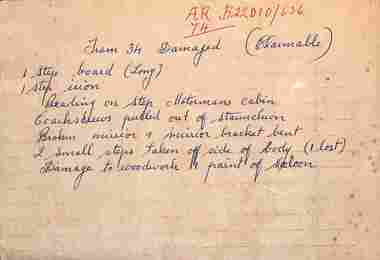 AR R22010/636
74
Tram 34 Damaged (Claimable)
1 Step board (Long)
1 step iron
Beading on step Motormans cabin
Coachscrews pulled out of staunchion
Broken mirror & mirror bracket bent
2 small steps taken off side of body (1 lost)
Damage to woodwork & paint of saloon